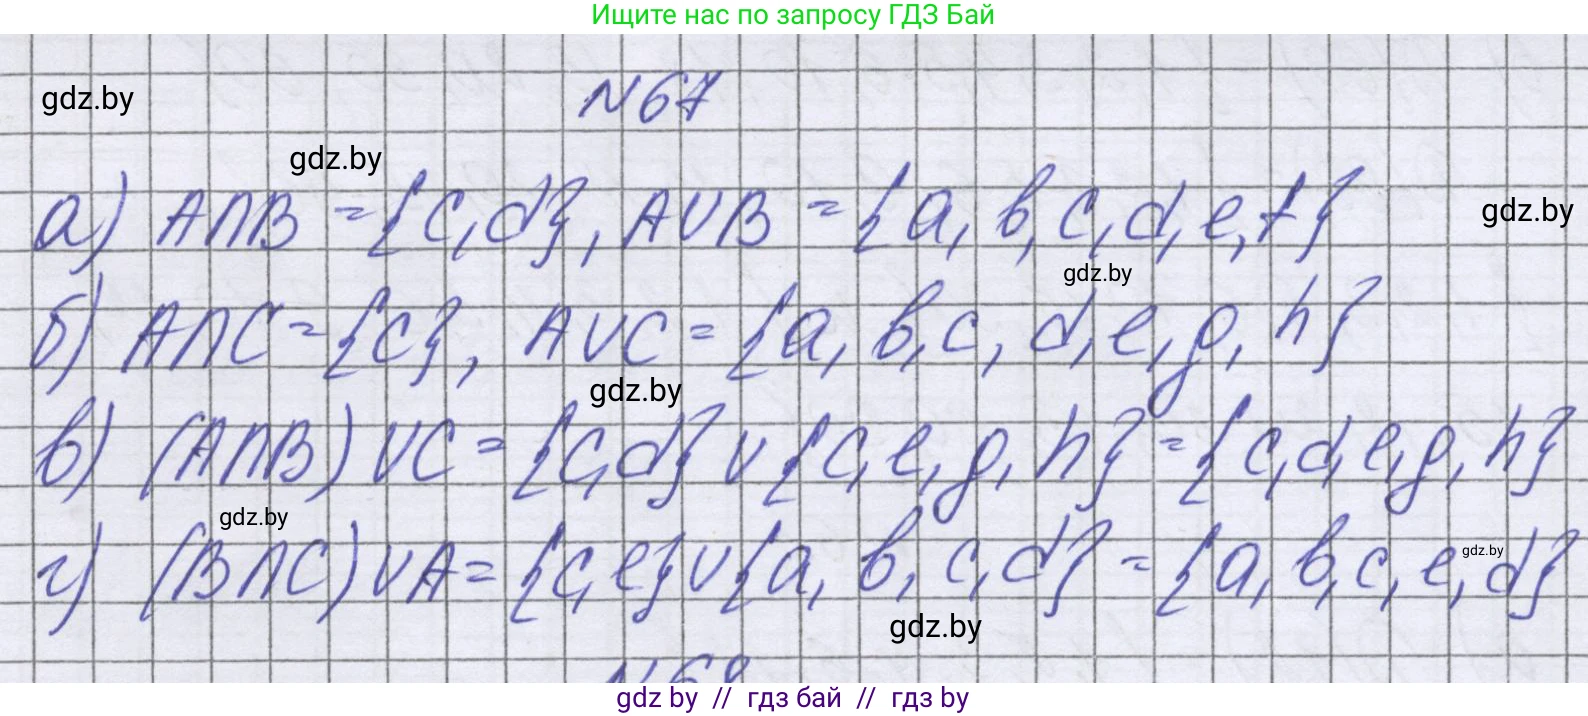 Ищите нас по запросу ГДЗ Бай
N67
gdz.by
gdz.by
а) A∩B = {c, d}, A∪B = {a, b, c, d, e, f}
gdz.by
gdz.by
б) A∩C = {c}, A∪C = {a, b, c, d, e, g, h}
gdz.by
в) (A∩B)∪C = {c, d}∪{c, e, g, h} = {c, d, e, g, h}
gdz.by
г) (B∩C)∪A = {c, e}∪{a, b, c, d} = {a, b, c, e, d}
gdz.by
gdz.by
N68
gdz by // гдз бай // гдз by